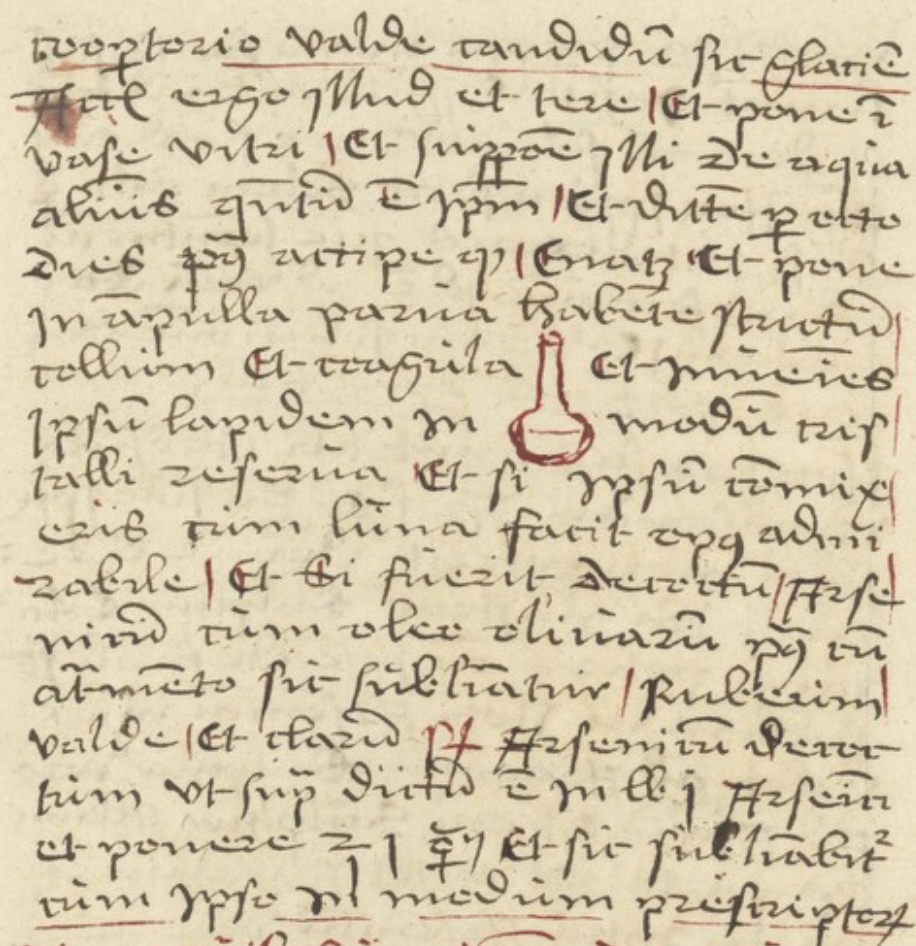 cooptorio valde candidū sic glaciē
Accl ergo illud et tere Et pone ī
vase vitri Et suppōe illi de aqua
alkitis qntū ē ipm Et dittē p octo
dies pꝯ accipe Et pone
In āpulla parua habēte strictū
collum Et coagula Et inueīes
Ipsū lapidem in modū cris
talli reserua Et si ipsū cōmix
eris cum luna facit opꝯ admi
rabile Et si fuerit decoctū Arse
nicū cum oleo oliuarū pꝯ cū
atrmēto sic subliātur Rubeum
valde Et clarū Arsenicū decoc
tum vt sup dictū ē In lb j Arseīci
et ponere Et sic subliābitr
cum ipso in modum prescriptoꝝ